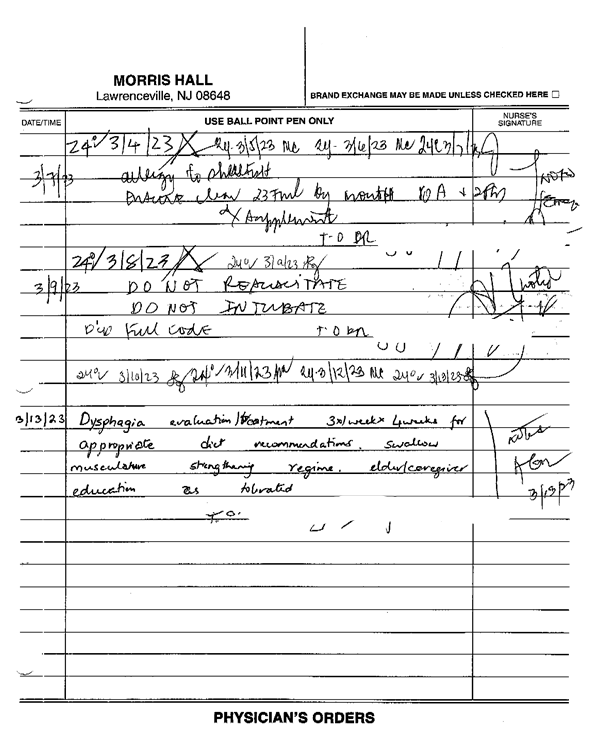 MORRIS HALL
Lawrenceville, NJ 08648
BRAND EXCHANGE MAY BE MADE UNLESS CHECKED HERE □
DATE/TIME USE BALL POINT PEN ONLY NURSE'S SIGNATURE
24° 3/4/23 24-3/5/23 MC 24-3/6/23 MC 24°
3/7/23 allergy to shellfish
Ensure clear 237ml by mouth 10A + 2pm
supplement
T-O DR
24° 3/8/23 24° 3/9/23
3/9/23 DO NOT RESUSCITATE noted
DO NOT INTUBATE
D/C'D Full CODE T-O DR
24° 3/10/23 24° 3/11/23 24-3/12/23 MC 24° 3/13/23
3/13/23 Dysphagia evaluation/treatment 3x/week x 4weeks for
appropriate diet recommendations, swallow noted
musculature strengthening regime, elder/caregiver
education as tolerated 3/13/23
T.O.
PHYSICIAN'S ORDERS